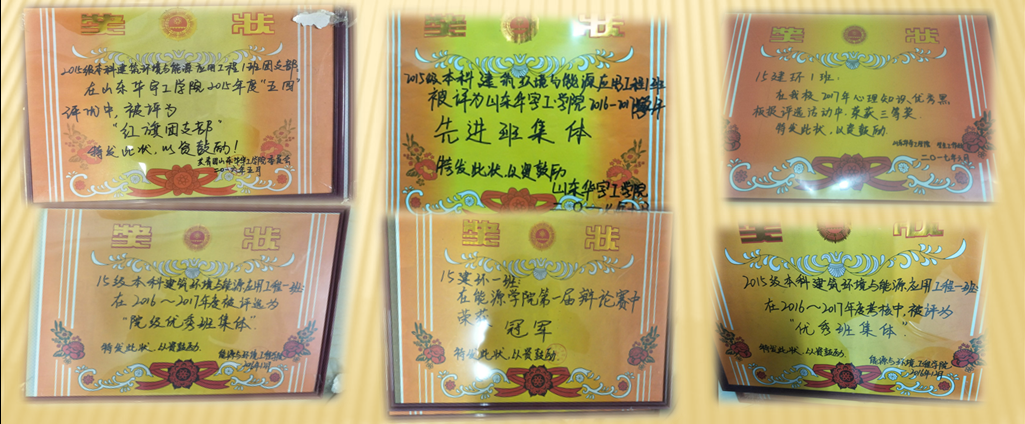 奖 状
2015级本科建筑环境与能源应用工程1班团支部
在山东华宇工学院2015年度“五四”
评询中，被评为
“红旗团支部”
特发此状，以资鼓励！
共青团山东华宇工学院委员会
二〇一六年五月
奖 状
2015级本科建筑环境与能源应用工程1班
被评为山东华宇工学院2016-2017学年
先进班集体
特发此状，以资鼓励
山东华宇工学院
奖 状
15建环1班：
在我校2017年心理知识优秀黑
板报评选活动中，荣获三等奖
特发此状，以资鼓励.
二〇一七年
奖 状
15级本科建筑环境与能源应用工程一班：
在2016～2017年度被评选为
“院级优秀班集体”
特发此状，以资鼓励.
能源与环境工程学院
奖 状
15建环一班：
在能源学院第一届辩论赛中
荣获
冠军
特发此状，以资鼓励.
奖 状
2015级本科建筑环境与能源应用工程一班：
在2016～2017年度考核中，被评为
“优秀班集体”
特发此状，以资鼓励.
能源与环境工程学院
2016年12月